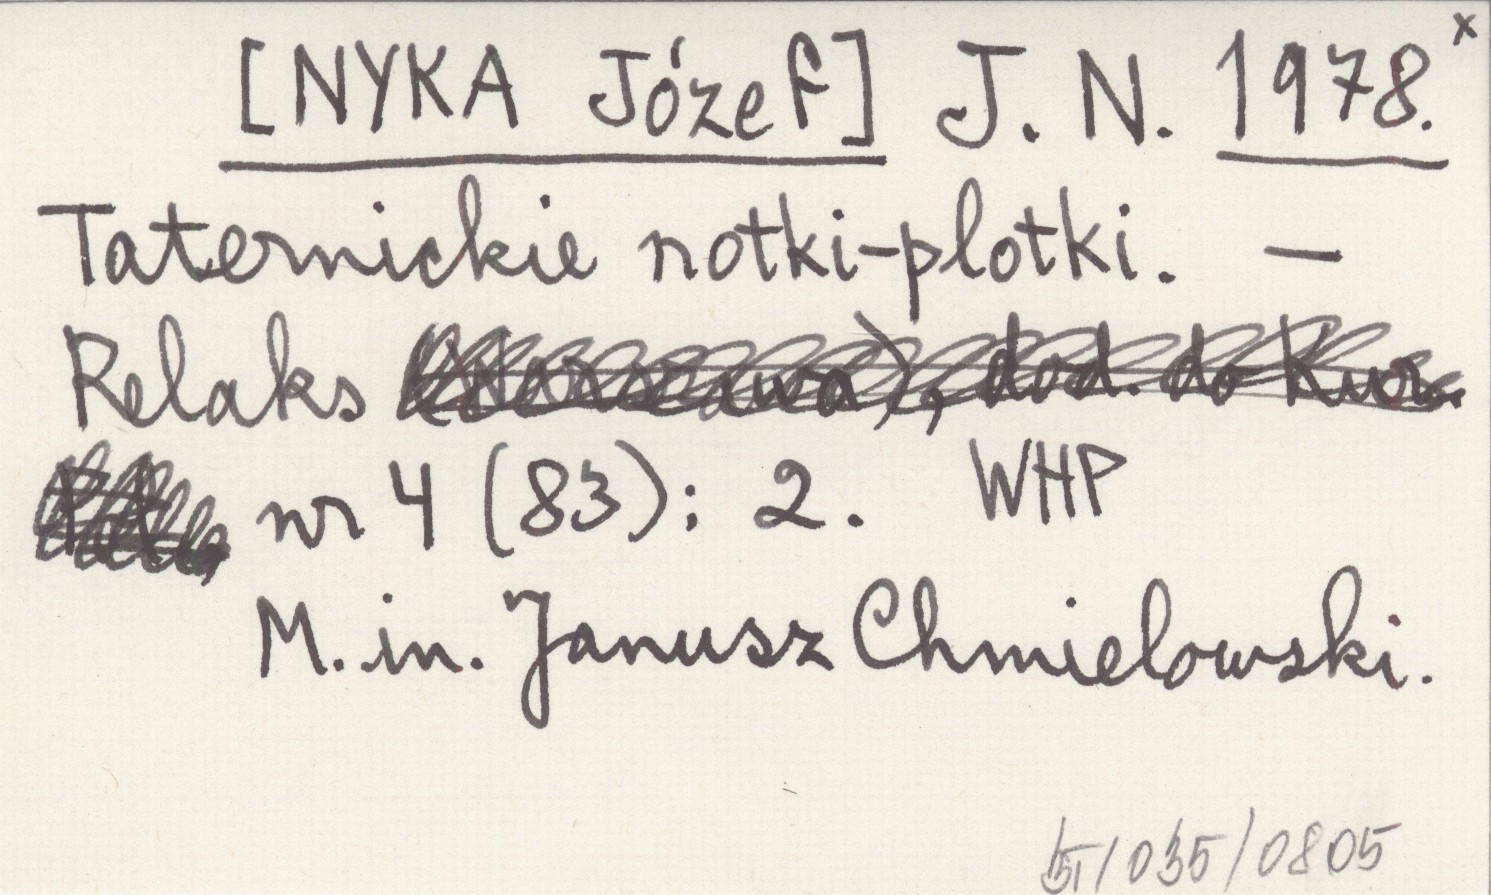 [NYKA Józef] J. N. 1978. x
Taternickie notki-plotki. —
Relaks (Warszawa), dod. do Kur.
nr 4 (83): 2. WHP
M. in. Janusz Chmielowski.
/035/0805